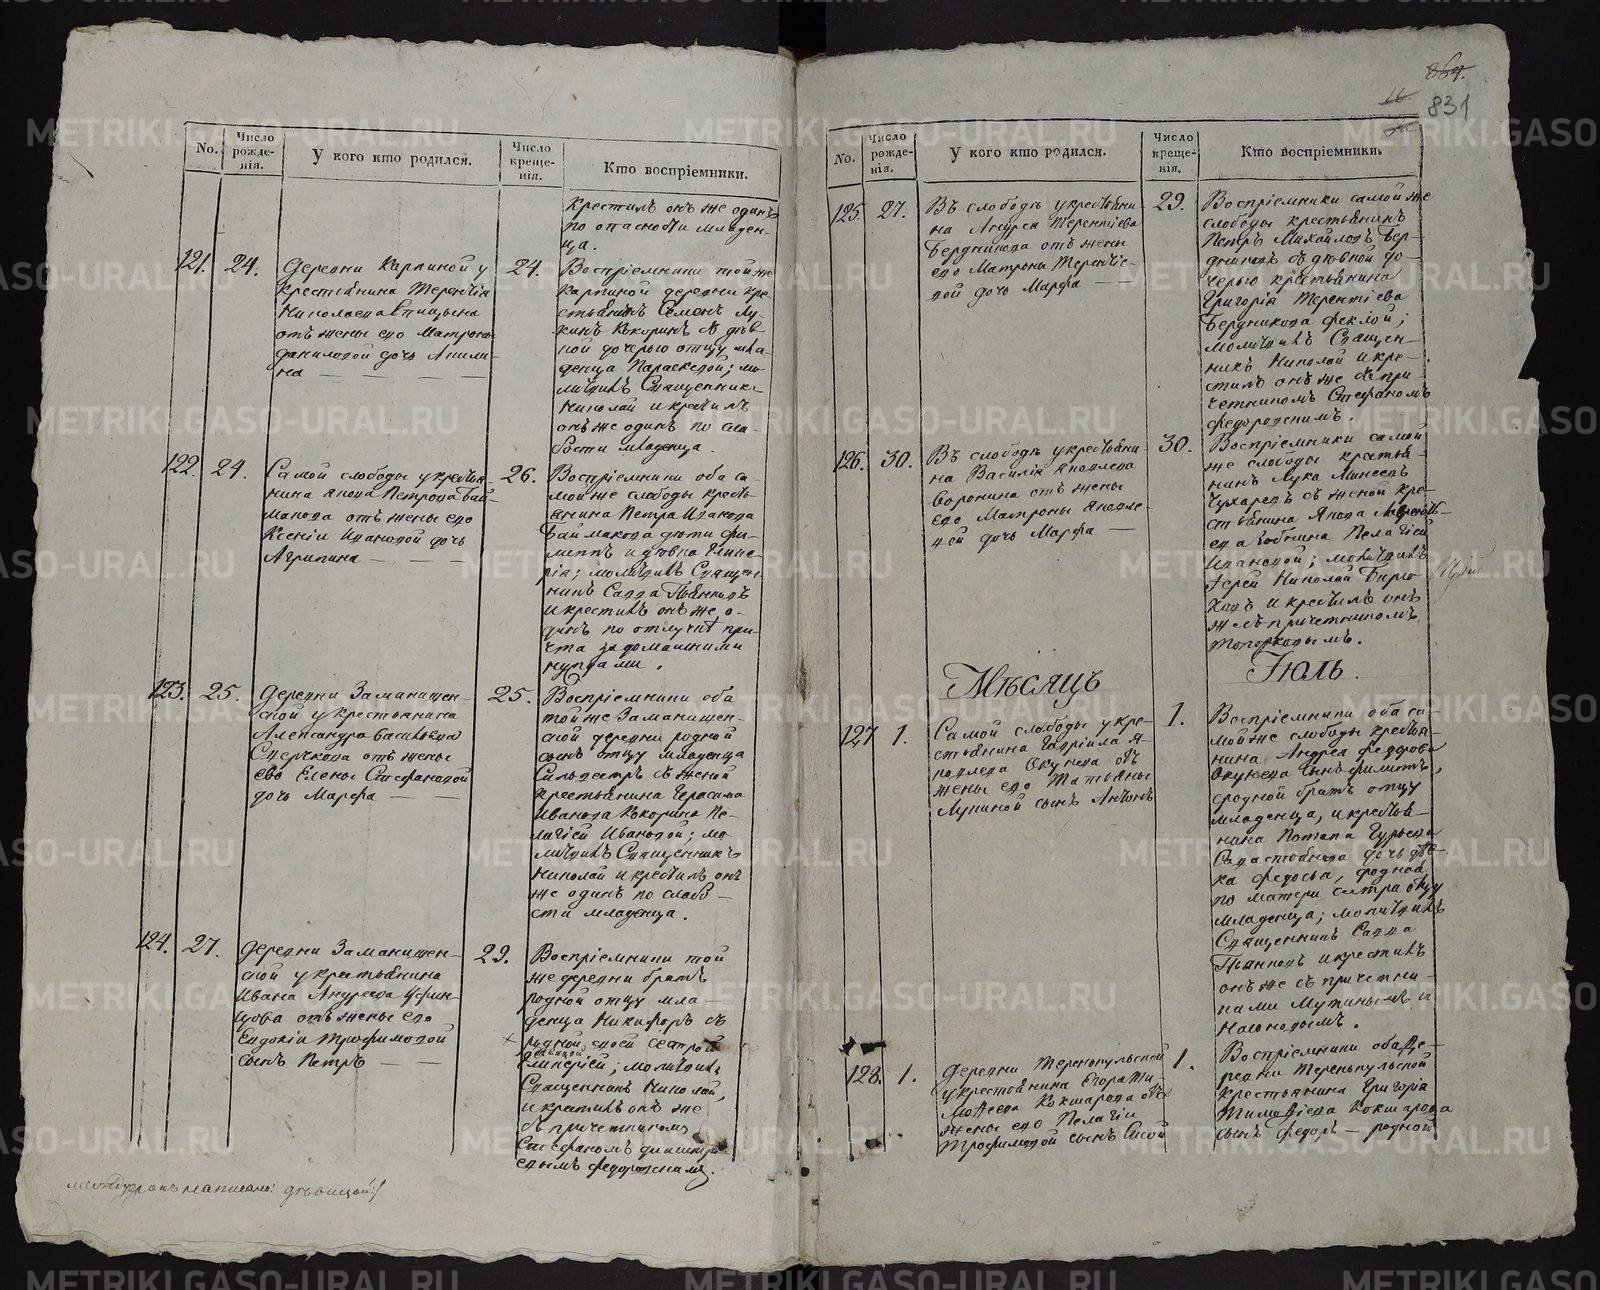 No.
Число рожде-нія.
У кого кто родился.
Число креще-нія.
Кто воспріемники.
крестилъ онъ же одинъ
по опасности младен-
ца.
121.
24.
Деревни Карпиной у
крестьянина Терентія
Николаева Птицына
отъ жены его Матроны
Даниловой дочь Акили-
на
24.
Воспріемники той же
Карпиной деревни кре-
стьянинъ Семенъ Лу-
кинъ Кокоринъ съ дѣв-
кой дочерью отцу мла-
денца Параскевой; мо-
литвилъ Священникъ
Николай и крестилъ
онъ же одинъ по сла-
бости младенца.
122.
24.
Самой слободы у крестья-
нина Якова Петрова Бай-
макова отъ жены его
Ксеніи Ивановой дочь
Агрипина
26.
Воспріемники оба са-
мой же слободы кресть-
янина Петра Иванова
Баймакова дѣти Фи-
липъ и дѣвка Глике-
рія; молитвилъ Священ-
никъ Савва Пьянковъ
и крестилъ онъ же о-
динъ по отлучкѣ при-
чта за домашними
нуждами.
123.
25.
Деревни Заманишен-
ской у крестьянина
Александра Васильева
Сверчкова отъ жены
его Елены Стефановой
дочь Марфа
25.
Воспріемники оба
той же Заманишен-
ской деревни родной
сынъ отцу младенца
Сильвестръ съ женой
крестьянина Герасима
Иванова Кокорина Пе-
лагіей Ивановой; мо-
литвилъ Священникъ
Николай и крестилъ онъ
же одинъ по слабо-
сти младенца.
124.
27.
Деревни Заманишен-
ской у крестьянина
Ивана Андреева
отъ жены его
Евдокіи Трофимовой
сынъ Петръ
29.
Воспріемники той
же деревни братъ
родной отцу мла-
денца Никифоръ съ
родной своей сестрой
девицой
Гликеріей; молитвилъ
Священникъ Николай,
и крестилъ онъ же
съ причетникомъ
Стефаномъ
Федоровскимъ.
дѣвицой:/
864.
16.
831
No.
Число рожде-нія.
У кого кто родился.
Число креще-нія.
Кто воспріемники.
125.
27.
Въ слободѣ у крестьяни-
на Андрея Терентіева
Бердникова отъ жены
его Матроны Терентіе-
вой дочь Марфа
29.
Воспріемники самой же
слободы крестьянинъ
Петръ Михайловъ Бер-
дниковъ съ дѣвкой до-
черью крестьянина
Григорія Терентіева
Бердникова Феклой;
молитвилъ Священ-
никъ Николай и кре-
стилъ онъ же съ при-
четникомъ Стефаномъ
Федоровскимъ.
126.
30.
Въ слободѣ у крестьяни-
на Василія Яковлева
Воронина отъ жены
его Матроны Яковле-
вой дочь Марфа
30.
Воспріемники самой
же слободы крестья-
нинъ Лука Минеевъ
Чухаревъ съ женой кре-
стьянина Якова
Пелагіей
Ивановой; молитвилъ
Іерей Николай Бирю-
ковъ и крестилъ онъ
же съ причетникомъ
Топорковымъ.
Мѣсяцъ
Іюль.
127
1.
Самой слободы у кре-
стьянина Гавріила Я-
ковлева Окунева отъ
жены его Татьяны
Лукиной сынъ Антонъ
1.
Воспріемники оба са-
мой же слободы крестья-
нина Андрея Федорова
Окунева сынъ Филипъ,
сродной братъ отцу
младенца, и крестья-
нина Потапа Гурьева
Севастьянова дочь дѣв-
ка Федосья, сродная
по матери сестра отцу
младенца; молитвилъ
Священникъ Савва
Пьянковъ и крестилъ
онъ же съ причетни-
ками Мутинымъ и
128.
1.
Деревни Теренкульской
у крестьянина Егора Ти-
мофеева Кокшарова отъ
жены его Пелагіи
Трофимовой сынъ Сысой
1.
Воспріемники оба де-
ревни Теренкульской
крестьянина Григорія
Тимофіева Кокшарова
сынъ Федоръ — родной